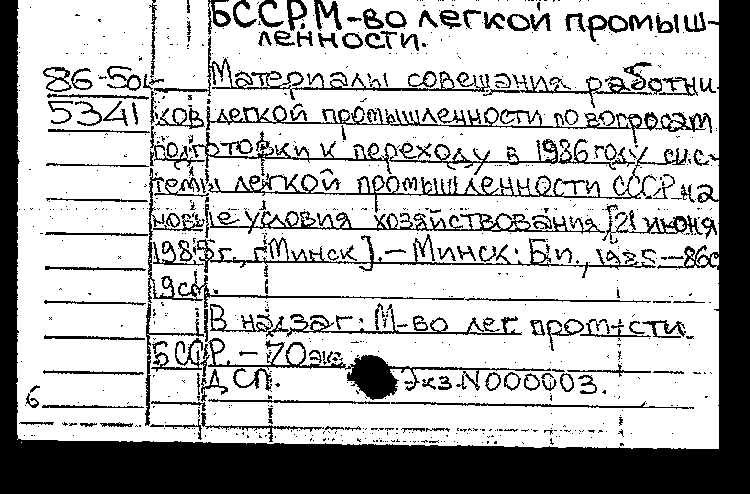 БССР. М-во легкой промыш-
ленности.
86-50
Материалы совещания работни-
5341
ков легкой промышленности по вопросам
подготовки к переходу в 1986 году сис-
темы легкой промышленности СССР на
новые условия хозяйствования [21 июня
1985 г., г. Минск]. – Минск: Б.и., 1985. – 86с
19см.
В надзаг: М-во лег. пром-сти
БССР. – 70 экз
ДСП. Экз. N000003.
6